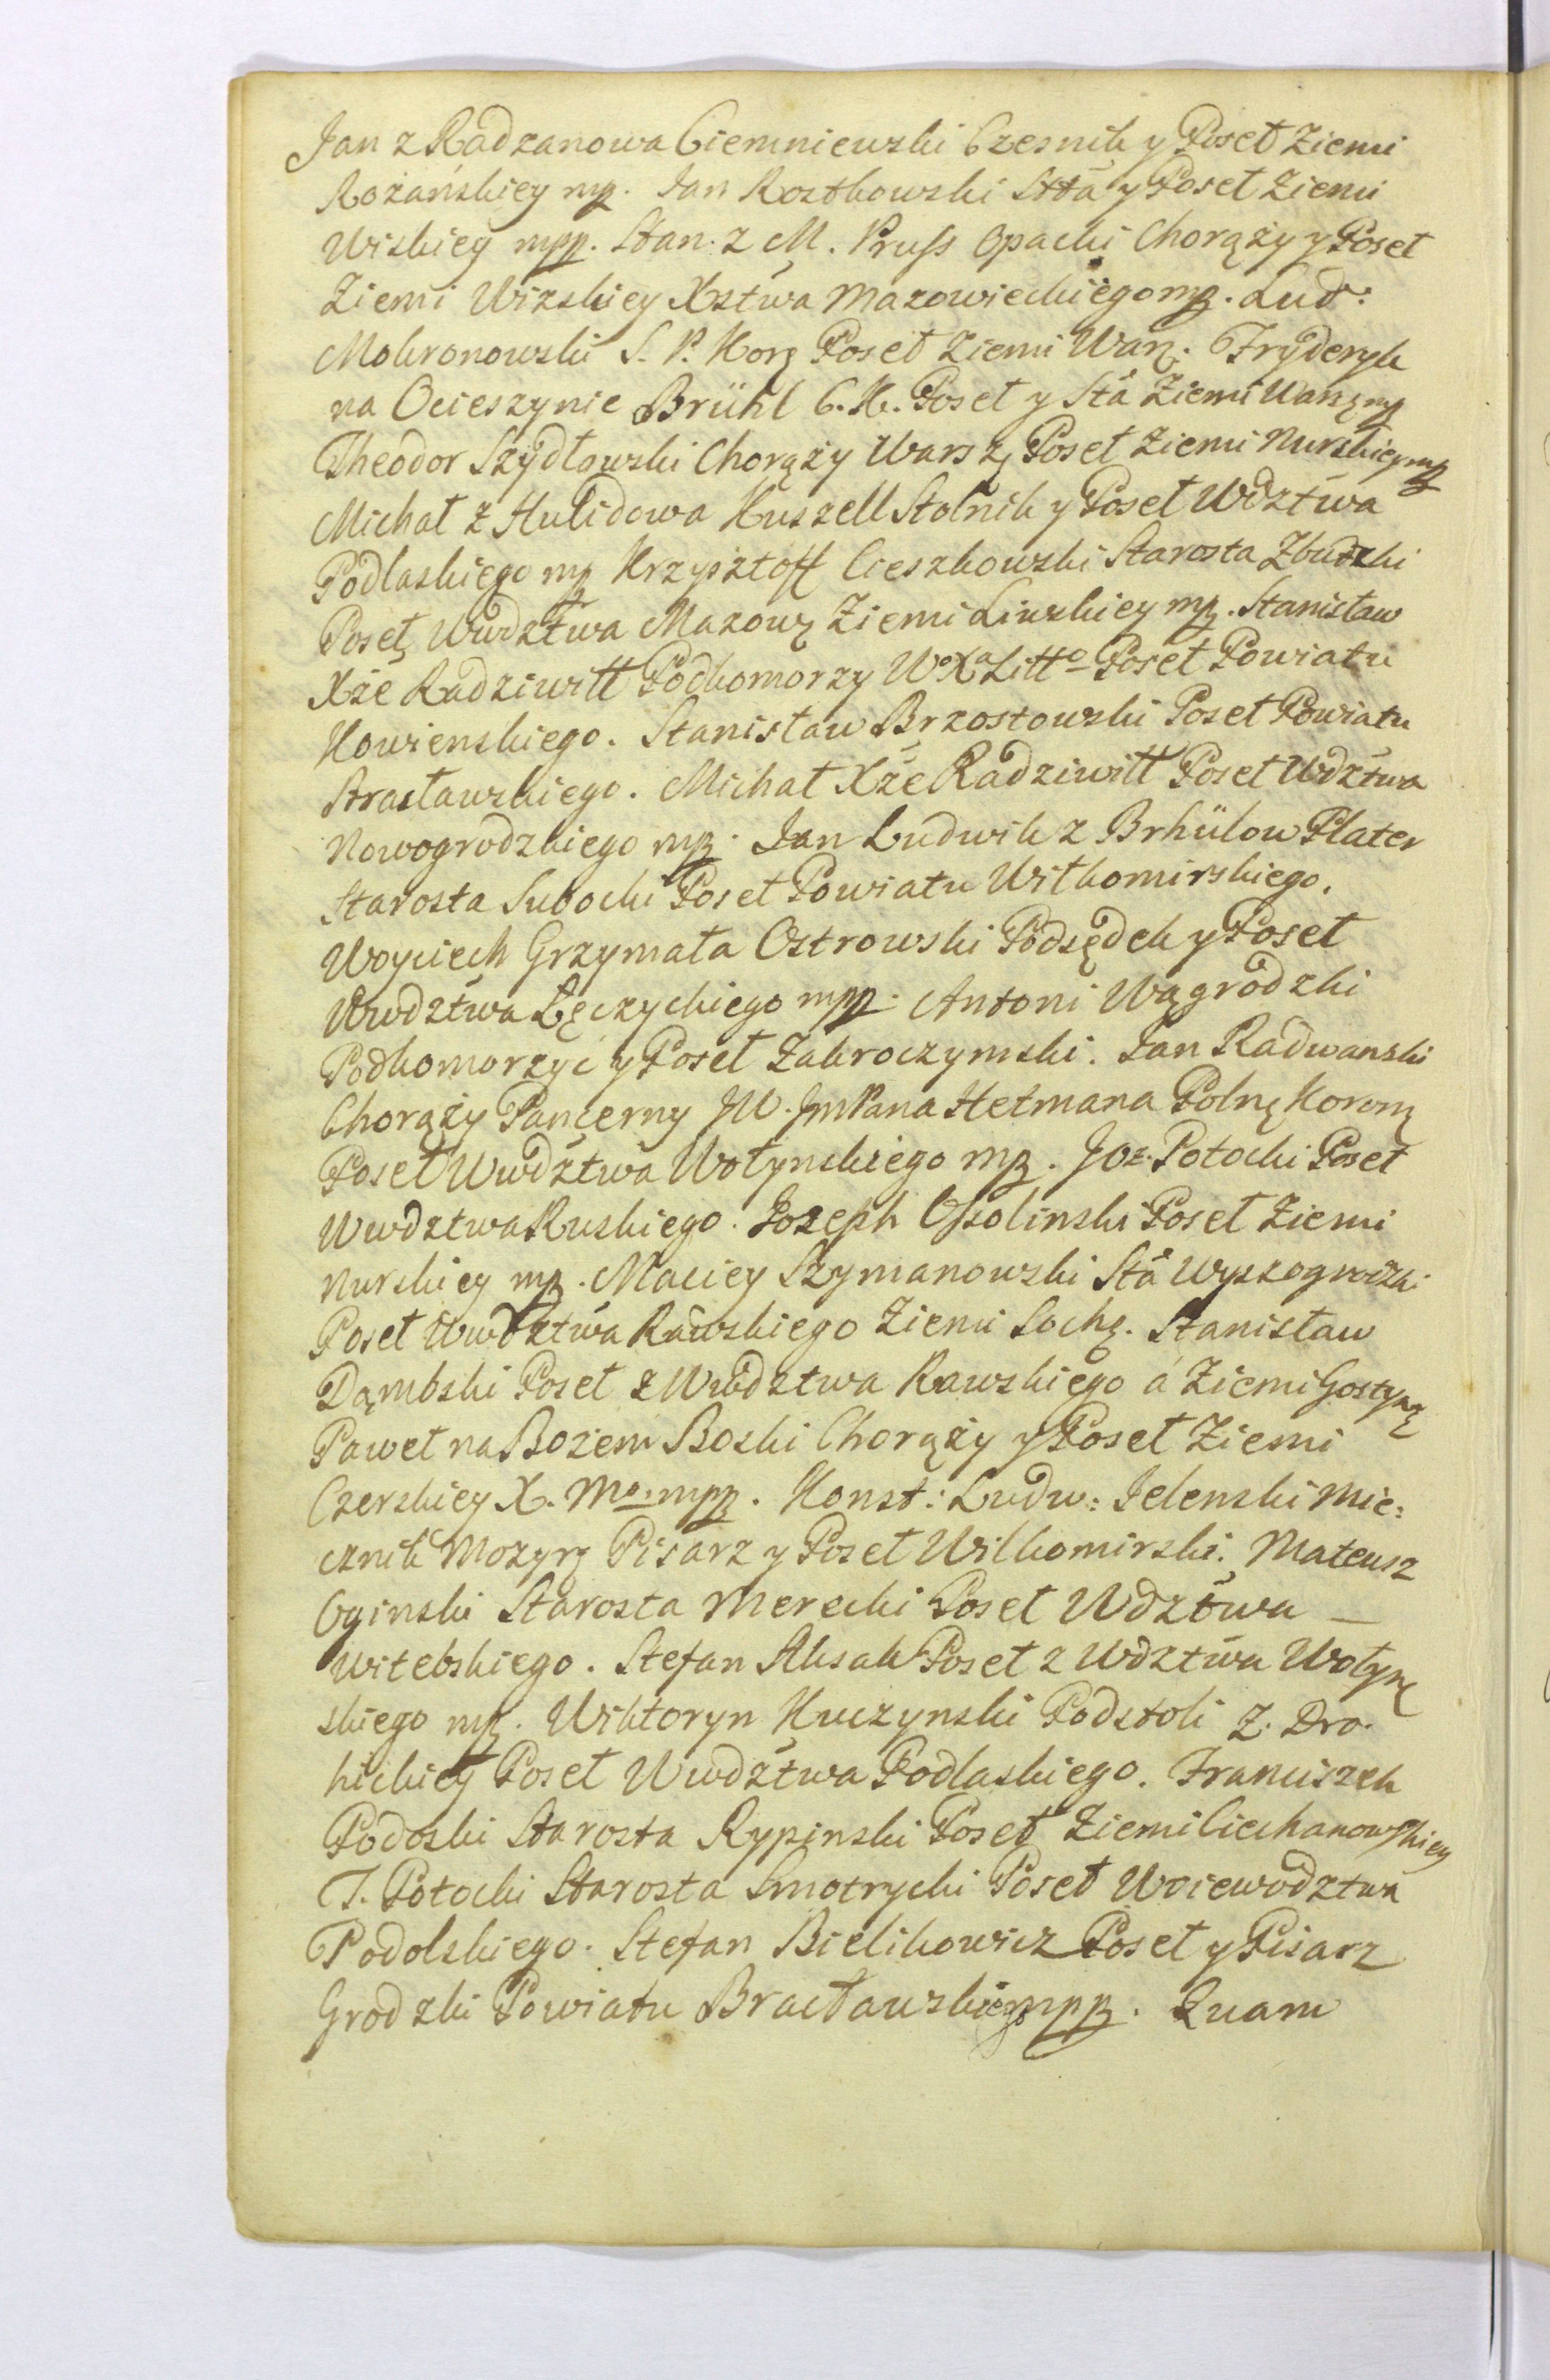 Jan z Radzanowa Ciemniewski Czesnik y Poseł Ziemi
Rożańskiey mp. Jan Rostkowski Stta y Poseł Ziemi
Wiskiey mpp. Stan. z M. Pruss Opacki Chorąży y Poseł
Ziemi Wizskiey Xsztwa Mazowieckiego mp. Lud:
Mokronowski S. P. Kor. Poseł Ziemi War. Fryderyk
na Ocieszynie Brühl C. K. Poseł y Sta Ziemi Warsz mp
Theodor Szydłowski Chorąży Warsz. Poseł Ziemi Nurskiey mp
Michał z Hulidowa Kuszell Stolnik y Poseł Wdztwa
Podlaskiego mp Krzysztoff Cieszkowski Starosta Zbudzki
Poseł Wwdztwa Mazow. Ziemi Liwskiey mp. Stanisław
Xże Radziwiłł Podkomorzy W° Xa Litt° Poseł Powiatu
Kowienskiego. Stanisław Brzostowski Poseł Powiatu
Brasławskiego. Michał Xże Radziwiłł Poseł Wdztwa
Nowogrodzkiego mp. Jan Ludwik z Brhülow Plater
Starosta Subocki Poseł Powiatu Wiłkomirskiego.
Woyciech Grzymała Ostrowski Podsędek y Poseł
Wwdztwa Łęczyckiego mpp. Antoni Wągrodzki
Podkomorzyc y Poseł Zakroczymski. Jan Radwanski
Chorąży Pancerny JW. Jm Pana Hetmana Polne Koron
Poseł Wwdztwa Wołynskiego mp. Joz. Potocki Poseł
Wwdztwa Ruskiego. Jozeph Ossolinski Poseł Ziemi
Nurskiey mp. Maciey Szymanowski Sta Wyszogrodzki
Poseł Wwdztwa Rawskiego Ziemi Soch. Stanisław
Dąmbski Poseł z Wwdztwa Rawskiego á Ziemi Gostyn
Paweł na Bożem Boski Chorąży y Poseł Ziemi
Czerskiey X. Mo. mpp. Konst: Ludw: Jelenski Mie:
cznik Mozyr. Pisarz y Poseł Wilkomirski. Mateusz
Oginski Starosta Merecki Poseł Wdztwa —
Witebskiego. Stefan Aksak Poseł z Wdztwa Wołyn
skiego mp. Wiktoryn Kuczynski Podstoli Z. Dro.
hickiey Poseł Wwdztwa Podlaskiego. Franciszek
Podoski Starosta Rypinski Poseł Ziemi Ciechanowskiey
J. Potocki Starosta Smotrycki Poseł Woiewodztwa
Podolskiego. Stefan Bielikowicz Poseł y Pisarz
Grodzki Powiatu Bracławskiego mpp. Quam